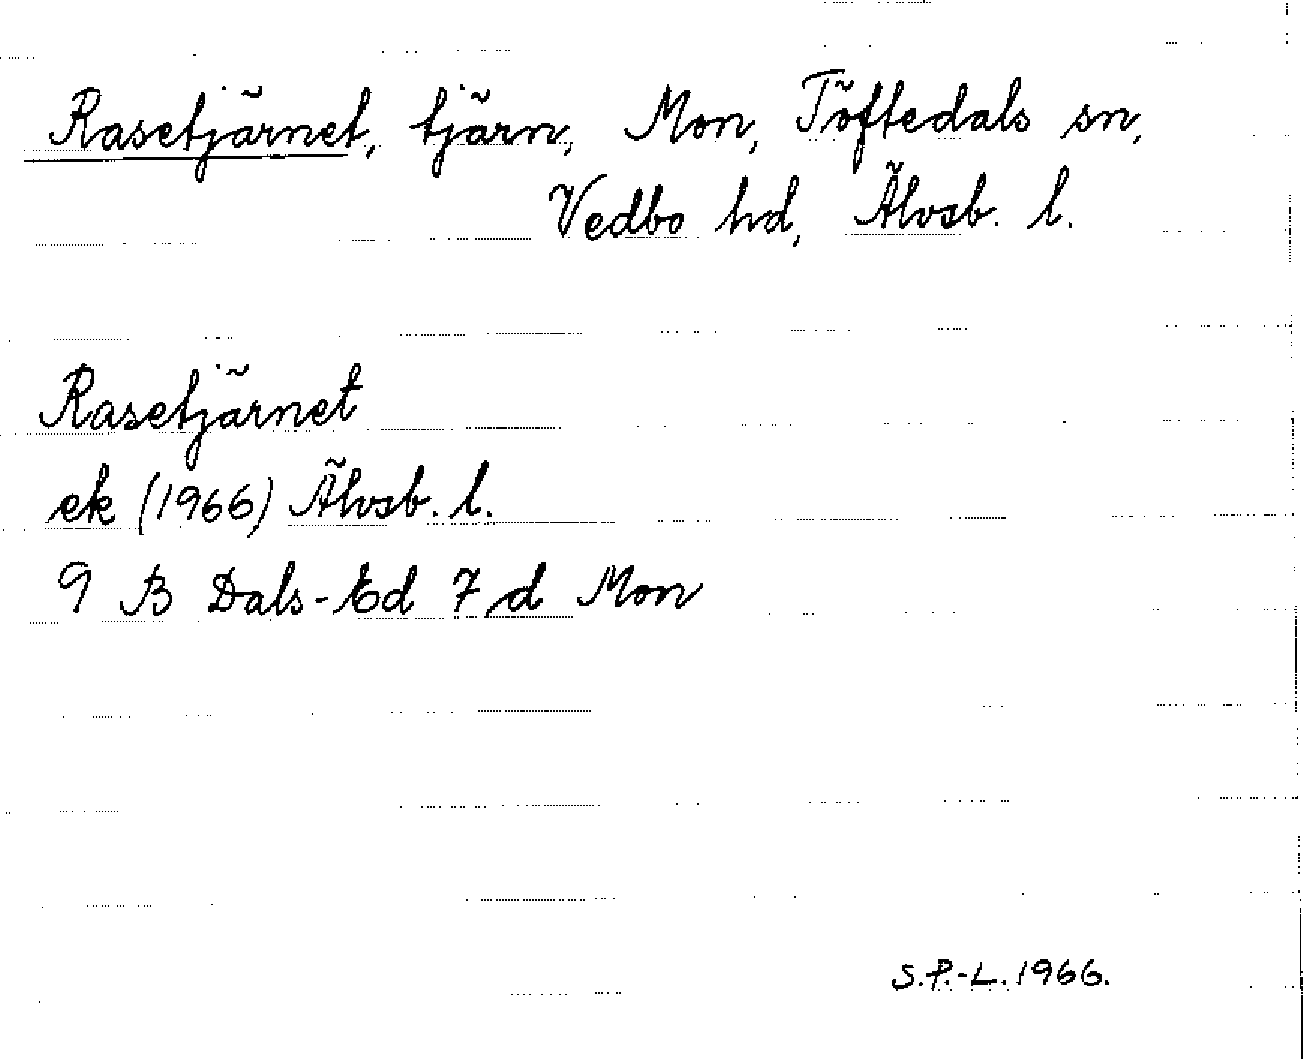 Rasetjärnet, tjärn, Mon, Töftedals sn,
Vedbo hd, Älvsb. l.
Rasetjärnet
ek (1966) Älvsb. l.
9 B Dals-Ed 7 d Mon
S.P.-L. 1966.